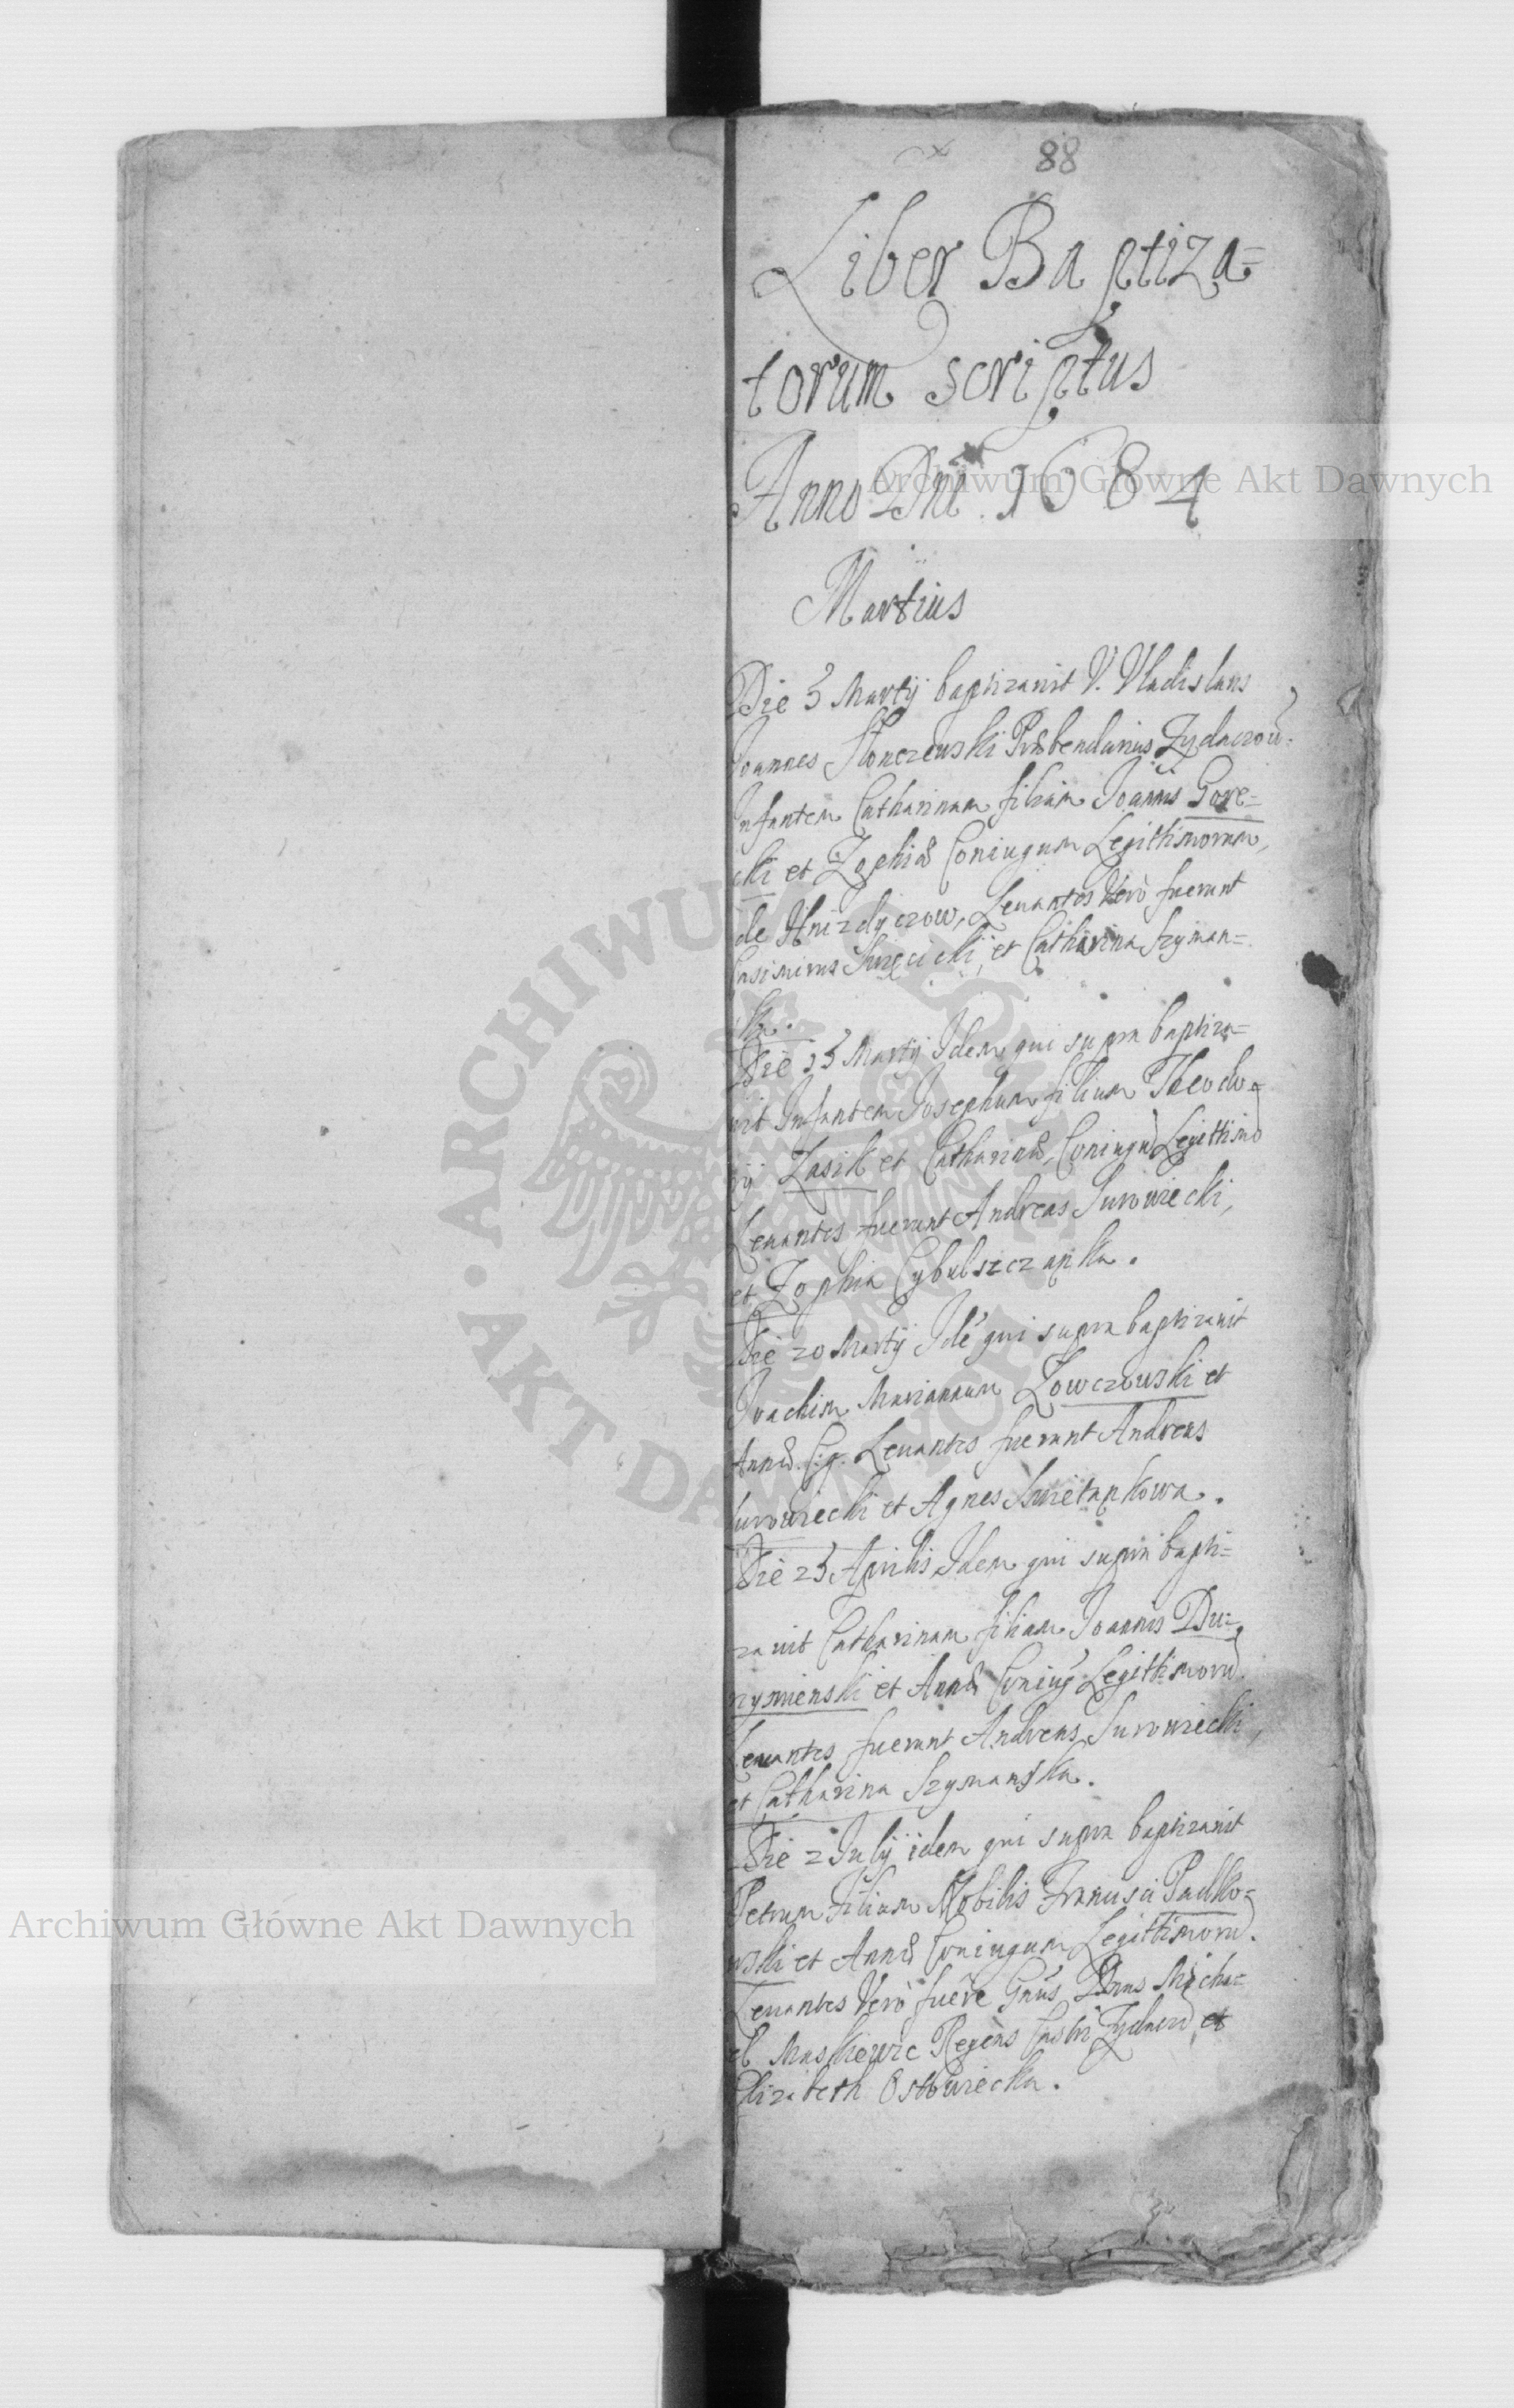 88
Liber Baptiza=
torum scriptus
Anno Dni 1684
Martius
Die 5 Martij baptizavit V. Vladislaus
Joannes Słonczewski Præbendarius Zydaczow:
Infantem Catharinam filiam Joannis Gore=
cki et Zophiæ Coniugum Legithimorum,
de Hnizdyczow, Levantes Vero fuerunt
Casimirus Swięcicki, et Catharina Szyman=
ska.
Die 15 Martij Idem qui supra baptiza=
vit Infantem Josephum filium Theodo=
rij Zasik et Catharinæ, Coniugũ Legittimo
Levantes fuerunt Andreas Surowiecki,
et Zophia Cybulszczanka.
Die 20 Martij Idẽ qui supra baptizavit
Joachim Mariannam Łowczowski et
Annæ C. g. Levantes fuerunt Andreas
Surowiecki et Agnes Swietankowa.
Die 25 Aprilis Idem qui supra bapti=
zavit Catharinam filiam Joannis Du=
nyowienski et Annæ Coniug Legithimorũ.
Levantes fuerunt Andreas Surowiecki,
et Catharina Szymanska.
Die 2 Julij idem qui supra baptizavit
Petrum Filium Nobilis Francisci Padko=
wski et Annæ Coniugum Legittimorũ.
Levantes Vero fuêre Gnus Dnus Micha=
el Maskiewic Regens Castri Zydacz et
Elizabeth Ostowiecka.
Archiwum Główne Akt Dawnych
Archiwum Główne Akt Dawnych
ARCHIWUM GŁÓWNE
AKT DAWNYCH